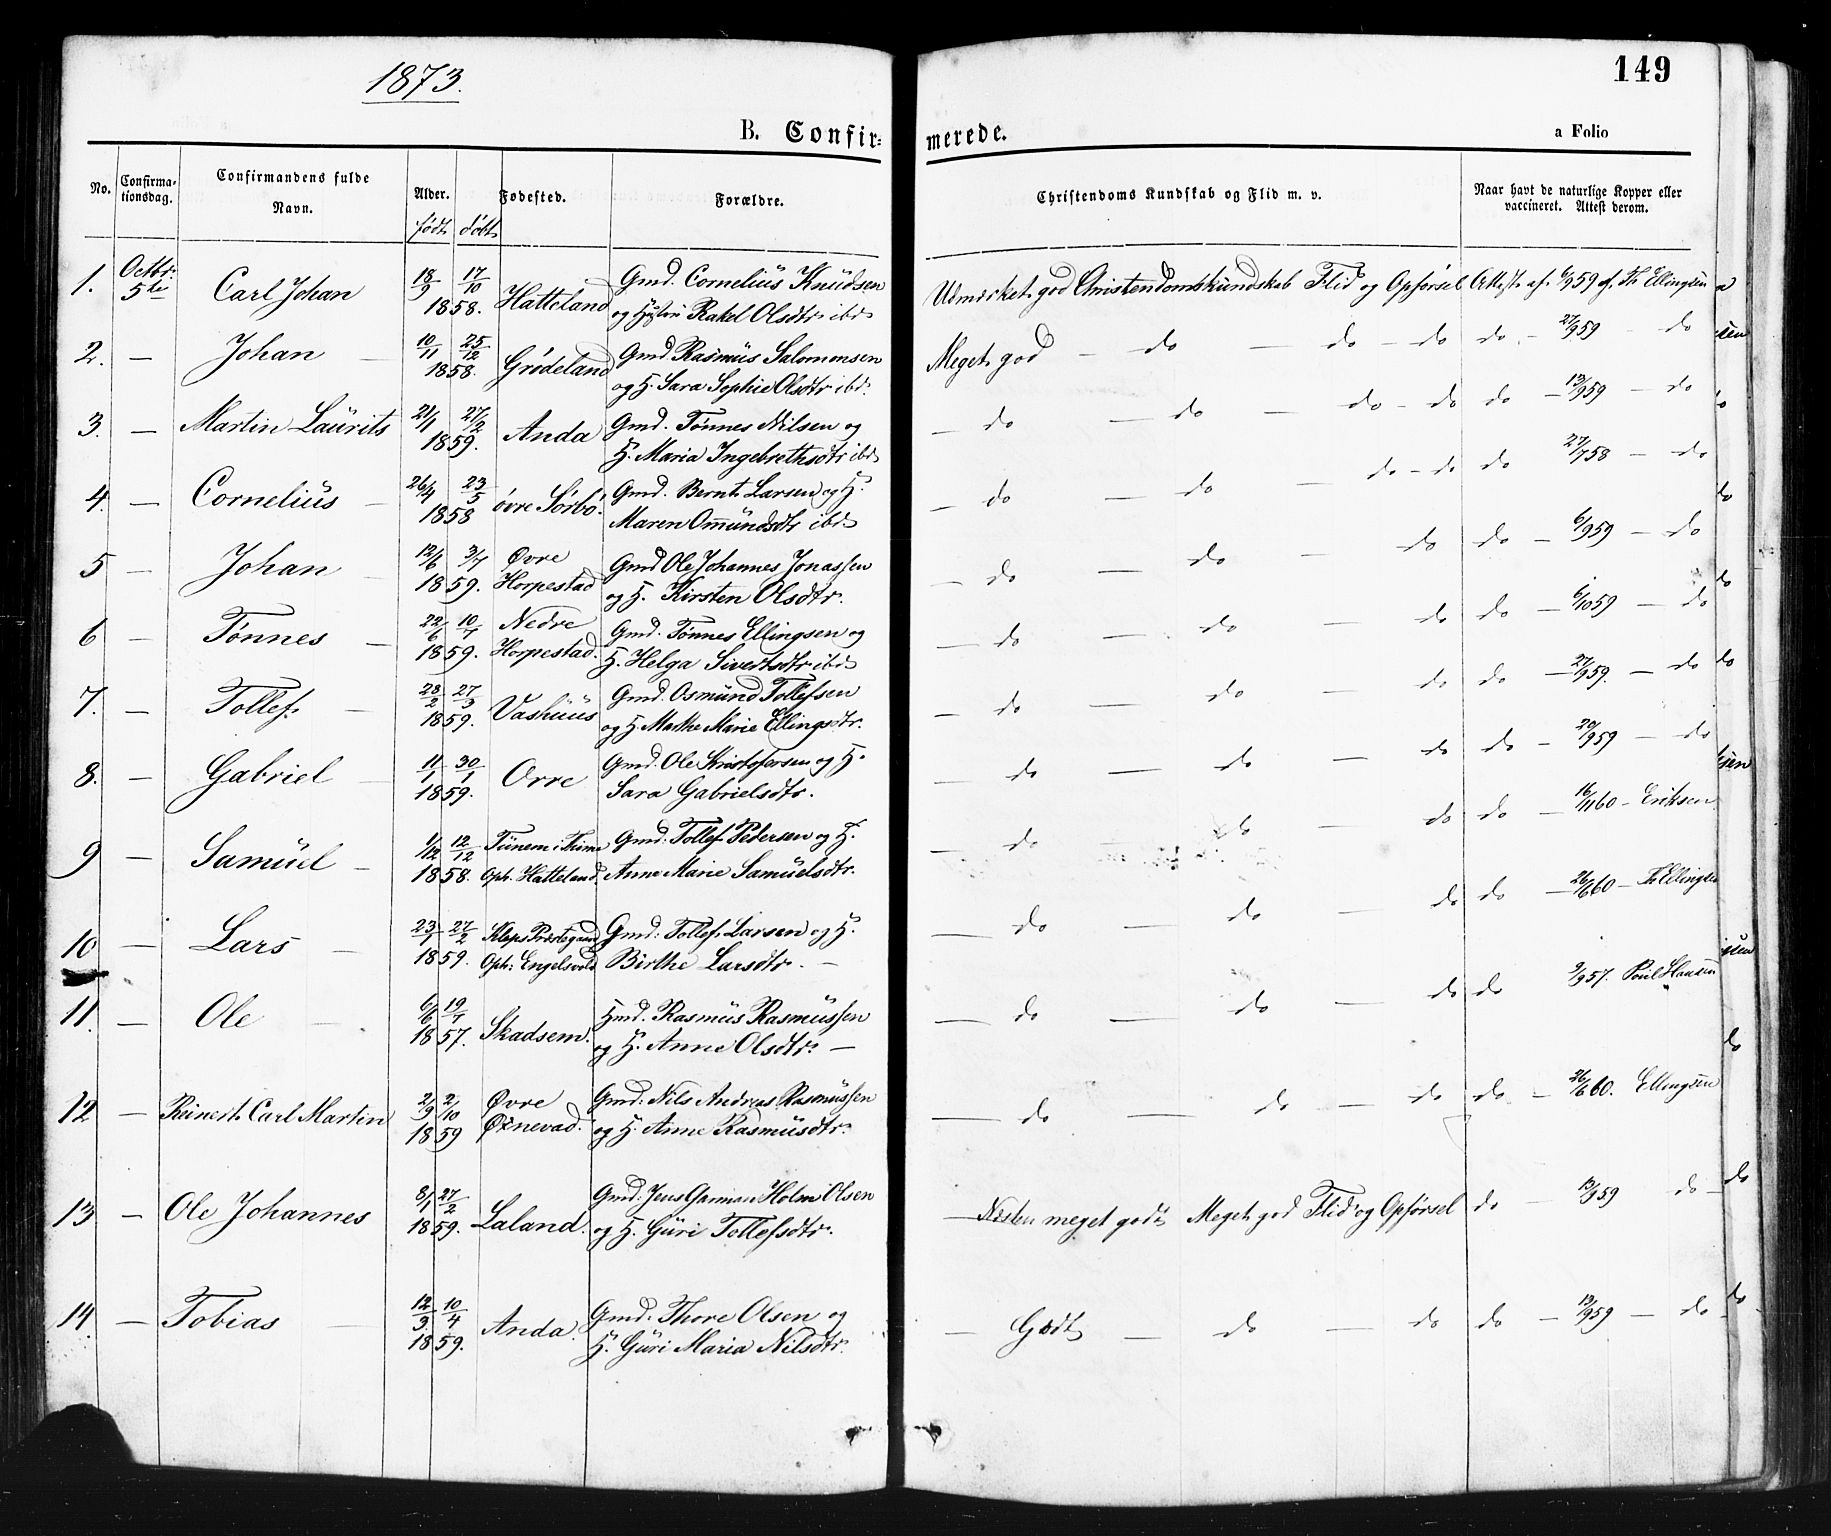 1873.
149
B. Confir=
merede.
a Folio
No.
Confirma-
tionsdag.
Confirmandens fulde
Navn.
Alder.
født døbt
Fødested.
Forældre.
Christendoms Kundskab og Flid m. v.
Naar havt de naturlige Kopper eller
vaccineret. Attest derom.
1. Octbr. Carl Johan 18/9 17/10 Hatteland Gmd. Cornelius Knudsen Udmærket god Christendomskundskab Flid og Opførsel Attest af 6/9 59 af Th Ellingsen
5te 1858. og Hustru Rakel Olsdtr ibd
2. — Johan — 10/11 25/12 Grødeland Gmd Rasmus Salomonsen Meget god — do — do — do do - 27/9 59 — do
1858. og H. Sara Sophie Olsdtr ibd.
3. — Martin Laurits 21/1 27/2 Anda Gmd. Tønnes Nilsen og — do — do — do — do do — 13/9 59 — do
1859. H. Maria Ingebrethsdtr ibd
4. — Cornelius — 26/4 23/5 øvre Sørbø. Gmd. Bernt Larsen og H. — do — do — do — do do 27/7 58 — do
1858 Maren Omundsdtr ibd
5 — Johan — 12/6 3/7 Øvre Gmd Ole Johannes Jonassen — do — do — do do — 6/9 59 — do
1859. Horpestad og H. Kirsten Olsdtr.
6 — Tønnes — 22/6 10/7 Nedre Gmd. Tønnes Ellingsen og — do — do — do do — 6/10 59 — do
1859. Horpestad. H. Helga Sivertsdtr ibd
7. — Tollef — 28/2 27/3 Vashuus Gmd. Osmund Tollefsen — do — do — do do — 27/9 59. — do
1859. og H. Marthe Marie Ellingsdtr.
8. — Gabriel — 11/1 30/1 Orre Gmd. Ole Kristofersen og H. — do — do — do do — 20/9 59 — do
1859. Sara Gabrielsdtr.
9 — Samuel — 1/12 12/12 Tunem i Time Gmd. Tollef Pedersen og H. — do — do — do do — 16/11 60 — Eriksen
1858. Oph. Hatteland. Anne Marie Samuelsdtr.
10 — Lars — 23/1 27/2 Kleps Præstegaard Gmd. Tollef Larsen og H. — do — do — do do — 26/6 60 — Th Ellingsen
1859. Oph: Engelsvold Birthe Larsdtr. —
11. — Ole — 6/6 19/7 Skadsem. Hmd. Rasmus Rasmussen — do — do — do do 9/9 57. Poul Hansen
1857. og H. Anne Olsdtr. —
12 — Reinert Carl Martin 2/9 2/10 Øvre Gmd: Nils Andreas Rasmussen — do — do — do do — 26/6 60. Ellingsen
1859 Øxnevad. og H. Anne Rasmusdtr.
13 — Ole Johannes 8/1 27/2 Laland. Gmd: Jens Garman Holm Olsen — Næsten meget godt Meget god Flid og Opførsel do — 13/9 59 do —
1859. og H. Guri Tollefsdtr.
14. — Tobias — 12/3 10/4 Anda. Gmd: Thore Olsen og — Godt — do — do do — 13/9 59 — do
1859. H. Guri Maria Nilsdtr.